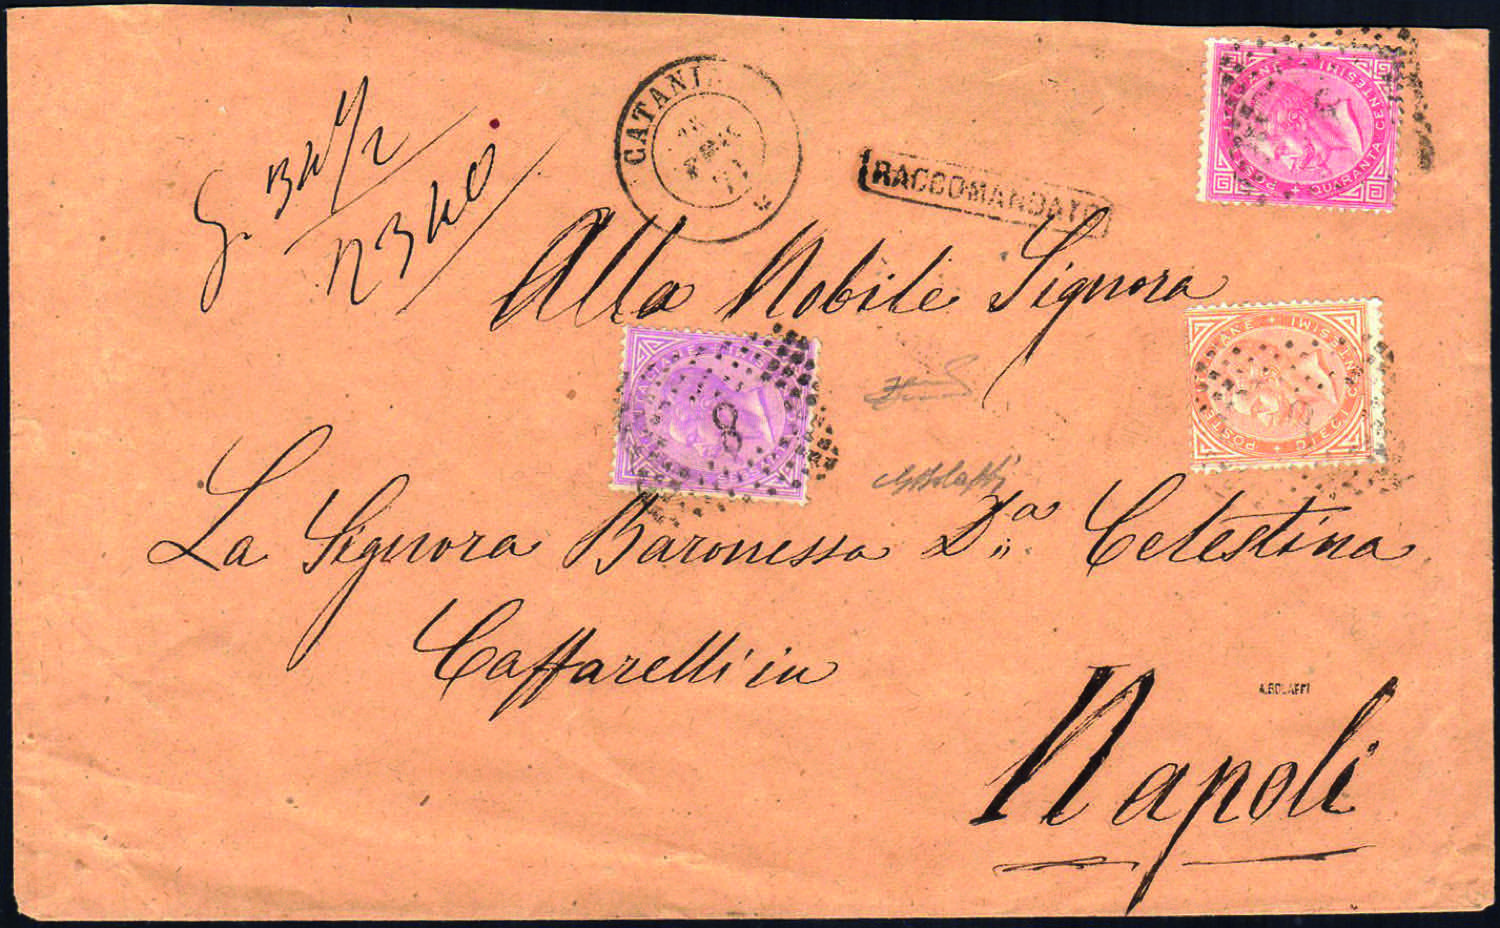 CATANIA
RACCOMANDATO
POSTE ITALIANE + QUARANTA CENTESIMI +
G. 34 1/2
N 340
Alla Nobile Signora
POSTE ITALIANE + DIECI CENTESIMI +
8
La Signora Baronessa D.ª Celestina
Caffarelli in
A.BOLAFFI
Napoli